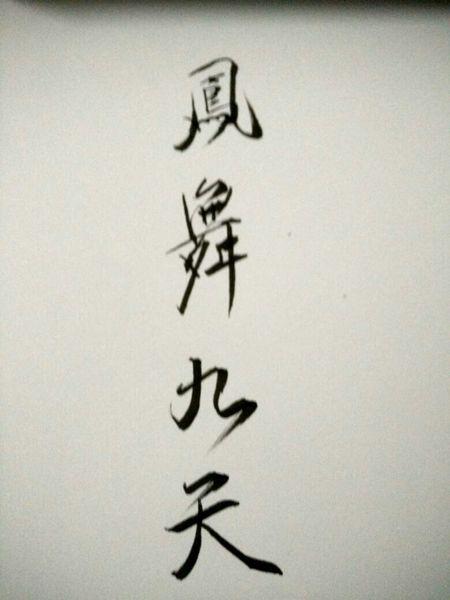 鳳舞九天